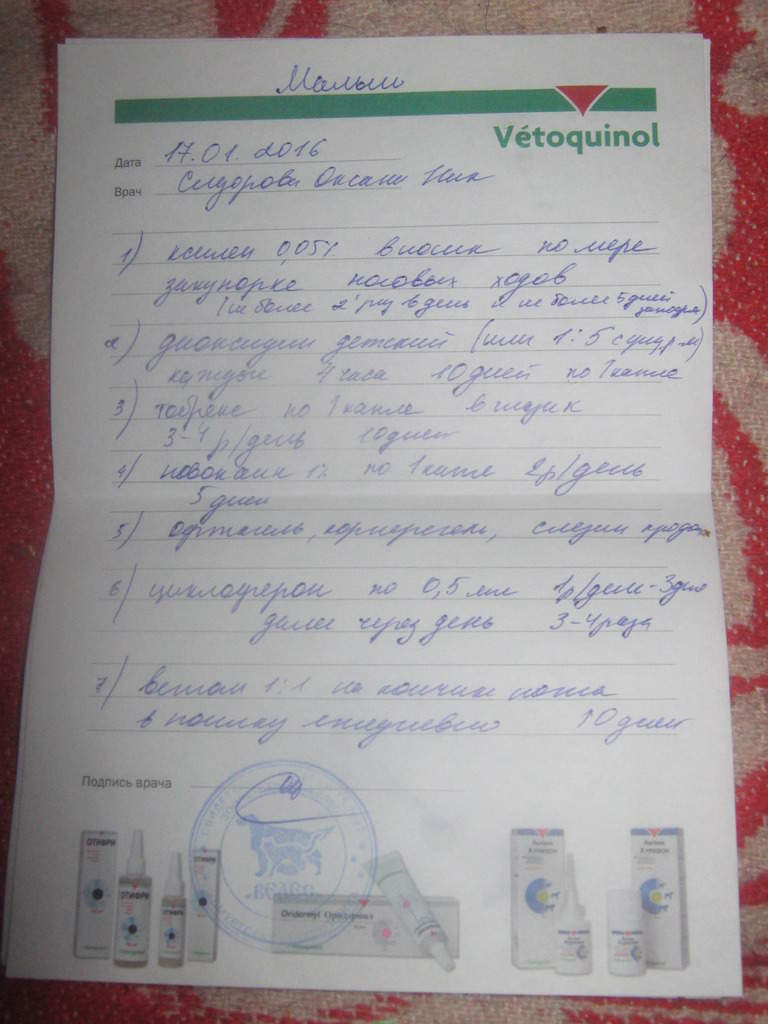 Малыш
Vétoquinol
Дата 17.01.2016
Врач Сидорова Оксана Ник
1) ксилен 0,05% в носик по мере
закупорке носовых ходов
(не более 2 раз в день и не более 5 дней
2) диоксидин детский (или 1:5
каждые 4 часа 10 дней по 1 капле
3) тобрекс по 1 капле в глазик
3-4 р/день 10 дней
4) новокаин 1% по 1 капле 2р/день
5 дней
5) офтагель, корнерегель,
6) циклоферон по 0,5 мл 1р/день - 3 дня
далее через день 3-4 раза
7) ветом 1:1 на кончике ножа
в поилку ежедневно 10 дней
Подпись врача
ОТИФРИ
ОТИФРИ
ОТИФРИ
ОТИФРИ